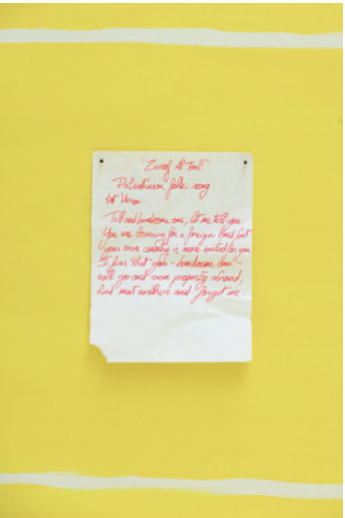 "Zareef Al Tool"
Palestinian folk song
1st Verse
Tall and handsome one, let me tell you:
You are leaving for a foreign land but
your own country is more suited for you
I fear that you - handsome one -
will go and own property abroad,
And meet another and forget me.